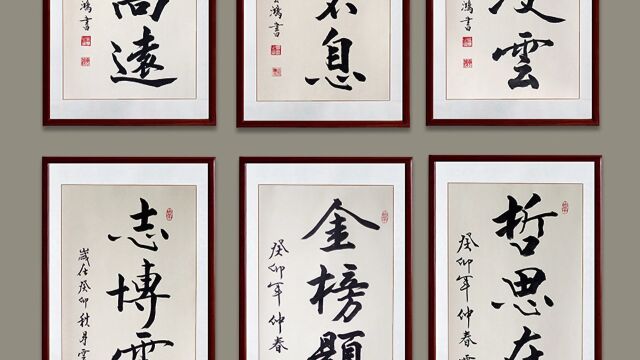 高遠
鴻書
不息
鴻書
凌雲
鴻書
志博雲
歲在癸卯秋月雲
金榜題
癸卯年仲春
哲思在
癸卯年仲春雲